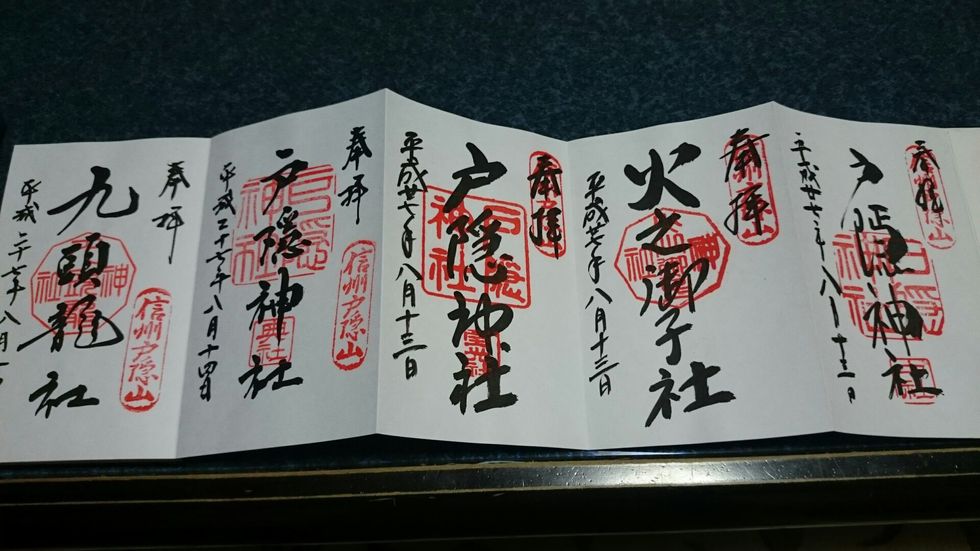 奉拝
戸隠神社
戸隠神社
平成廿七年八月十三日
奉拝
火之御子社
平成廿七年八月十三日
奉拝
戸隠神社
戸隠神社
平成廿七年八月十三日
奉拝
信州戸隠山
戸隠神社
戸隠神社
奥社
平成二十七年八月十四日
奉拝
信州戸隠山
九頭龍社
平成二十七年八月